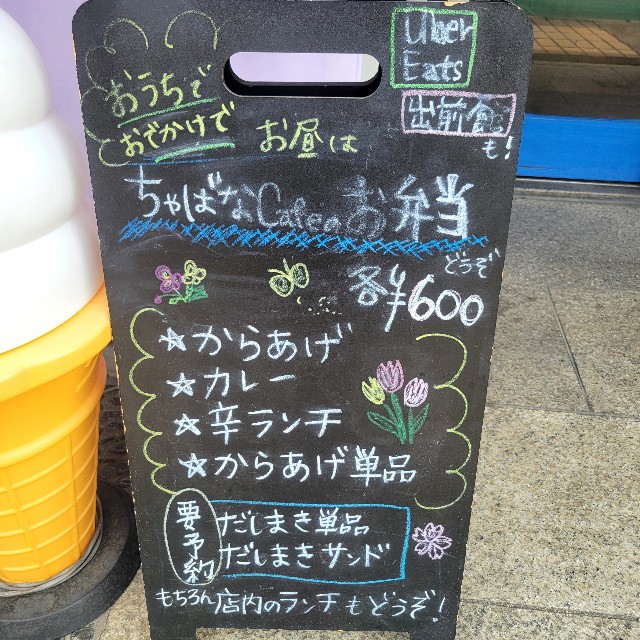 Uber
Eats
出前館
も!
おうちで
おでかけで
お昼は
ちゃばなCafeのお弁当
どうぞ
各¥600
☆からあげ
☆カレー
☆辛ランチ
☆からあげ単品
要予約
だしまき単品
だしまきサンド
もちろん店内のランチもどうぞ!